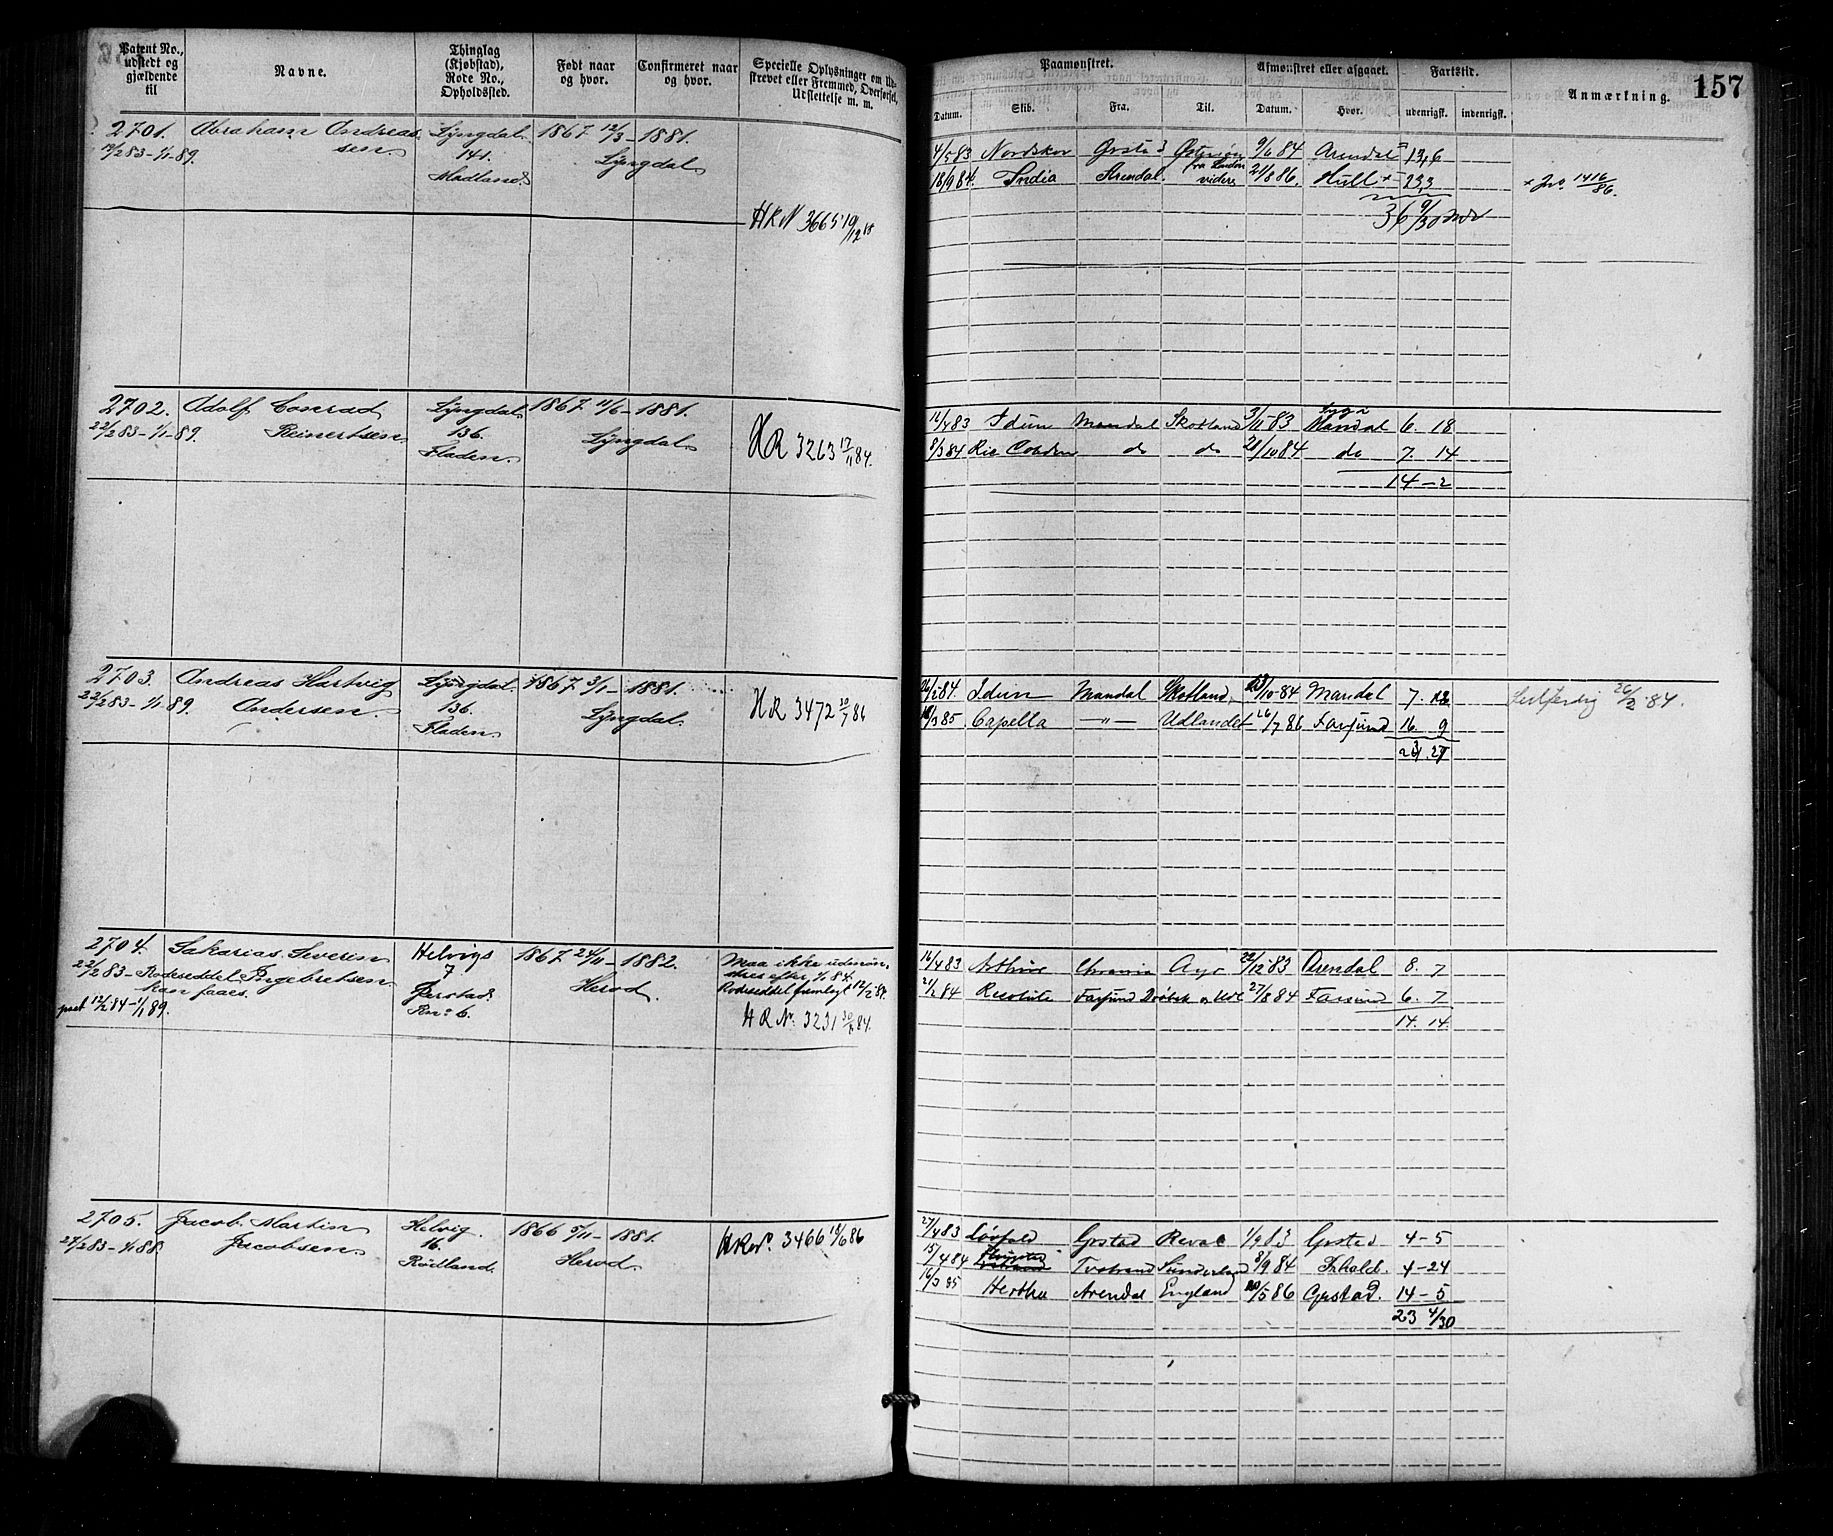 157
Patent No., udstedt og gjældende til
Navne.
Thinglag (Kjøbstad), Rode No., Opholdssted.
Født naar og hvor.
Confirmeret naar og hvor.
Specielle Oplysninger om Udstrevet eller Fremmed, Overførsel, Udslettelse m. m.
Paamønstret.
Afmønstret eller afgaaet.
Fartstid.
Anmærkning.
Datum. Skib. Fra. Til. Datum. Hvor. udenrigst. indenrigst.
2701. Abraham Andreas Lyngdal 1867 12/3 - 1881.
19/2 83 - 1/1 - 89. sen 141. Lyngdal
Madland
HRN 3665 19/12
4/5 83 Nordskov Grsta Østersøen 9/6 84 Arendal 13,6
18/9 84 India Arendal fra London videre 21/8 86. Hull + 23,3 + Jno. 1416/86.
36 9/30
2702. Adolf Conrad Lyngdal 1867 11/6 - 1881.
22/2 83 - 1/1 - 89. Reinertsen 136. Lyngdal
Fladen.
HR 3263 17/11 84.
11/4 83 Idun Mandal Skotland 3/11 - 83 Mandal 6. 18
8/3 84 Ric Cobden do do 20/10 84 do 7. 14
14 - 2
2703. Andreas Hartvig Lyngdal 1867 3/1 - 1881.
22/2 83 - 1/1 89. Andersen 136. Lyngdal
Fladen.
HR 3472 30/7 86
26/2 84. Idun Mandal Skotland /10 - 84 Mandal 7. 26/2 84.
/3 85 Capella - " - Udlandet 26/7 86 Farsund 16. 9
2704. Sakarias Severin Helvigs 1867 24/11 - 1882.
22/2 83 - Rodeseddel Ingebretsen 7 Herod.
kan faaes. Jerstad
12/2 84 - 1/1 89. Rno 6.
Maa ikke udmøn-
stres efter 1/1 84.
Rodeseddel fremlagt 12/2 84.
HR No. 3231 84.
16/4 83 Ayr 22/12 83 Arendal 8. 7
21/2 84 Resolute Farsund Drøbak og Udl 27/8 84 Farsund 6. 7
14. 14
2705. Jacob Martin Helvig. 1866 5/11 - 1881.
27/2 83 - 1/1 88. Jacobsen 16. Herod.
Rödland.
HRNo. 3466 18/6 86
27/4 83 Grstad Reval 1/9 83 Grsted 4 - 5
15/4 84 Tvedestrand Sunderland 8/9 84 4 - 24
16/3 85 Hertha Arendal England 20/5 86 Grstad. 14 - 5
23 4/30